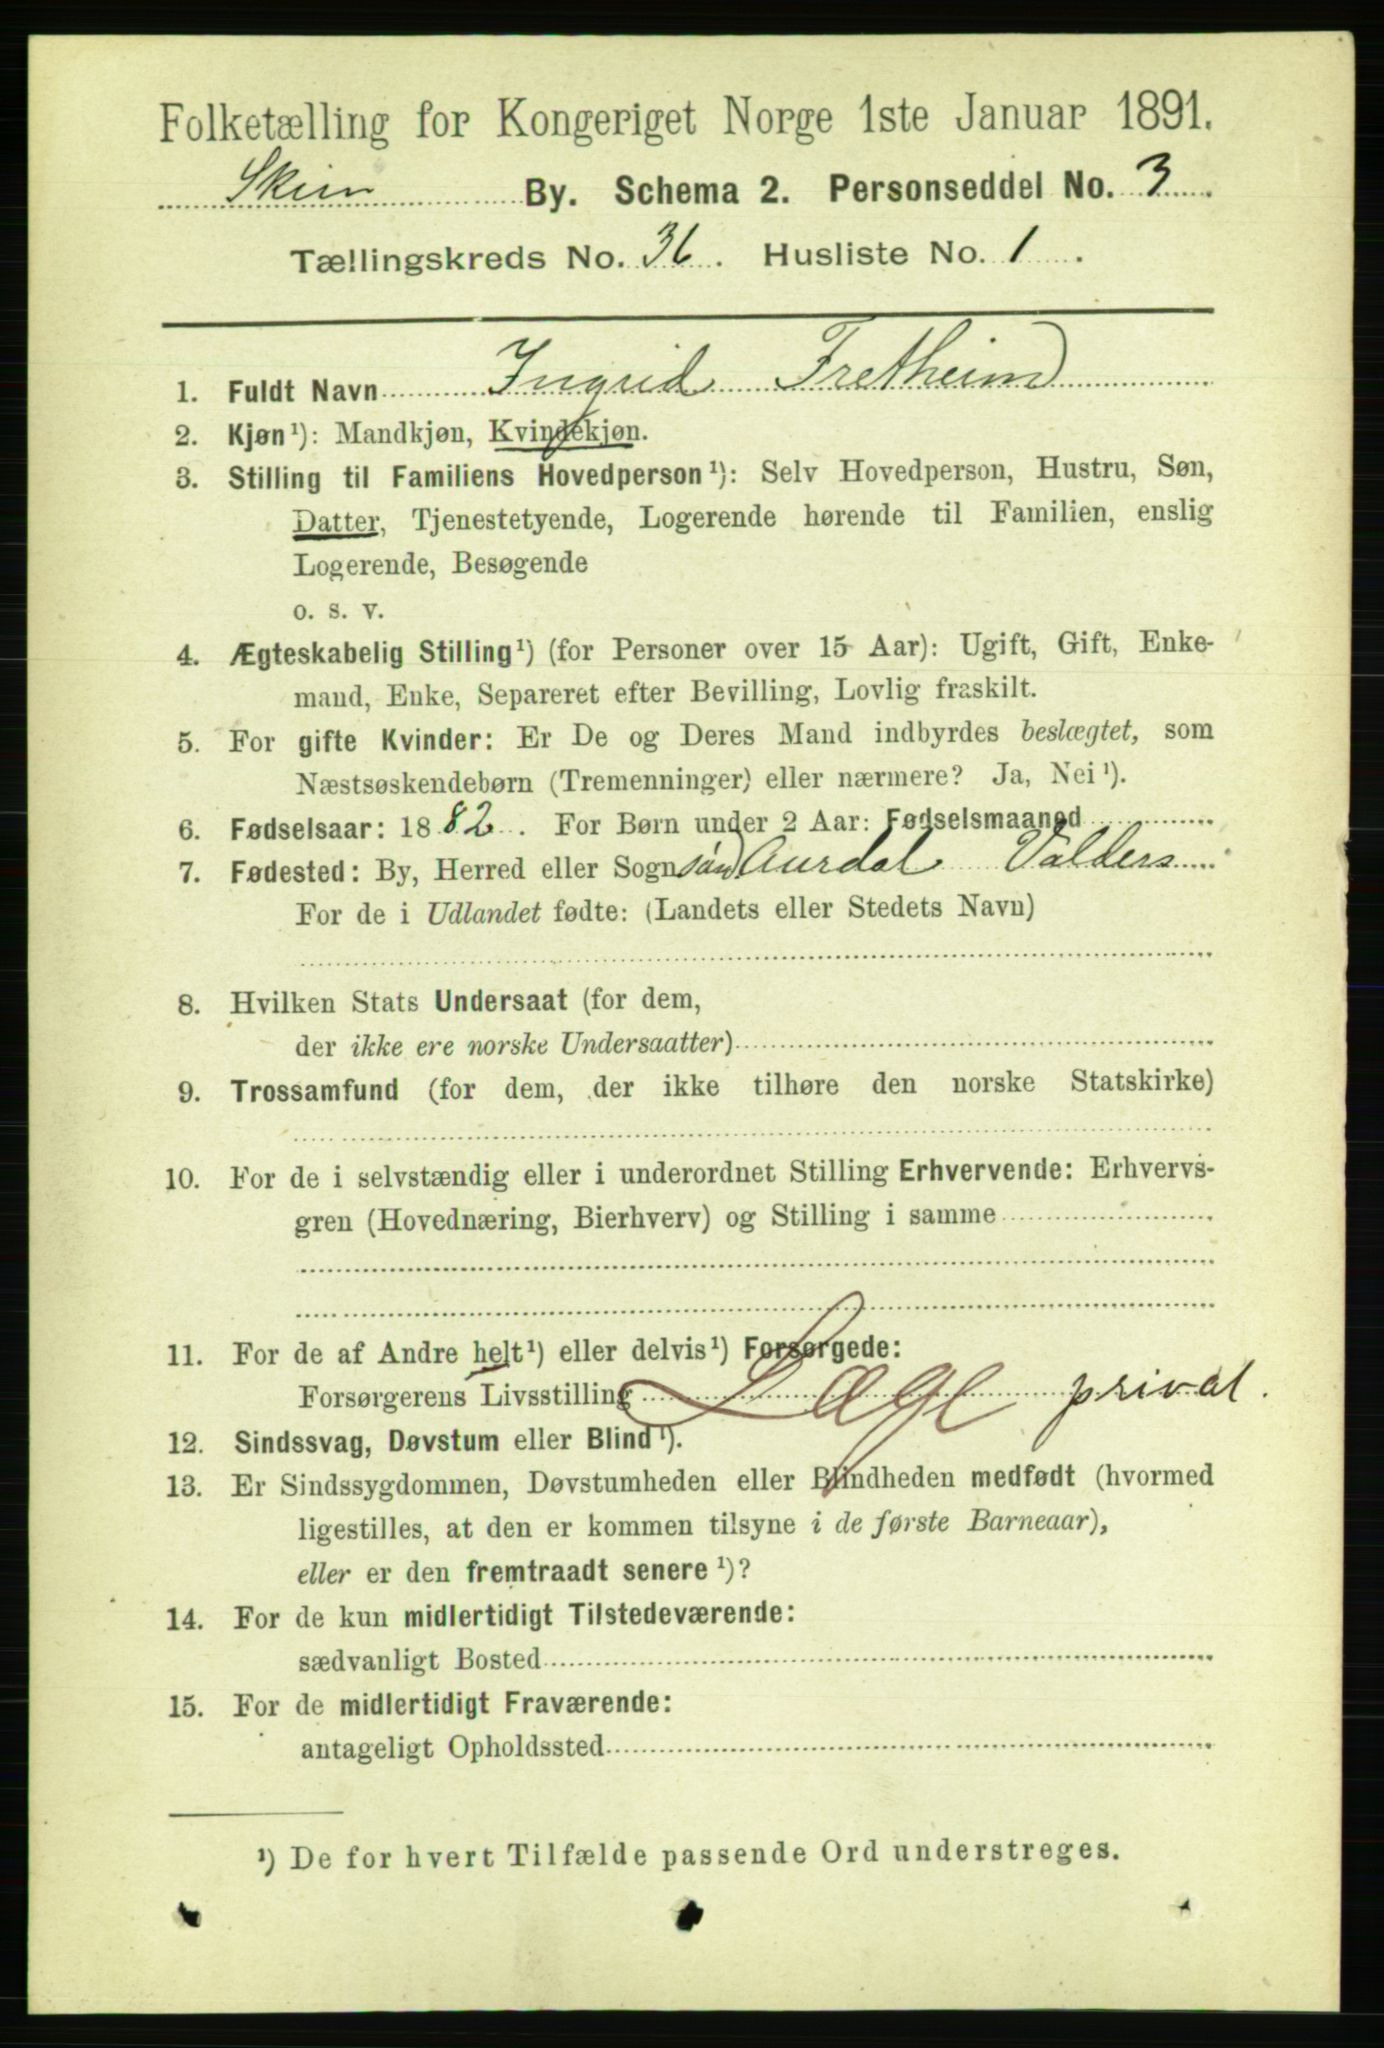 Folketælling for Kongeriget Norge 1ste Januar 1891.
Skien By. Schema 2. Personseddel No. 3
Tællingskreds No. 36. Husliste No. 1.
1. Fuldt Navn Ingrid Fretheim
2. Kjøn¹): Mandkjøn, Kvindekjøn.
3. Stilling til Familiens Hovedperson¹): Selv Hovedperson, Hustru, Søn,
Datter, Tjenestetyende, Logerende hørende til Familien, enslig
Logerende, Besøgende
o. s. v.
4. Ægteskabelig Stilling¹) (for Personer over 15 Aar): Ugift, Gift, Enke-
mand, Enke, Separeret efter Bevilling, Lovlig fraskilt.
5. For gifte Kvinder: Er De og Deres Mand indbyrdes beslægtet, som
Næstsøskendebørn (Tremenninger) eller nærmere? Ja, Nei¹).
6. Fødselsaar: 1882. For Børn under 2 Aar: Fødselsmaaned
7. Fødested: By, Herred eller Sogn sønd Aurdal Valders
For de i Udlandet fødte: (Landets eller Stedets Navn)
8. Hvilken Stats Undersaat (for dem,
der ikke ere norske Undersaatter)
9. Trossamfund (for dem, der ikke tilhøre den norske Statskirke)
10. For de i selvstændig eller i underordnet Stilling Erhvervende: Erhvervs-
gren (Hovednæring, Bierhverv) og Stilling i samme
11. For de af Andre helt¹) eller delvis¹) Forsørgede:
Forsørgerens Livsstilling Læge privat.
12. Sindssvag, Døvstum eller Blind¹).
13. Er Sindssygdommen, Døvstumheden eller Blindheden medfødt (hvormed
ligestilles, at den er kommen tilsyne i de første Barneaar),
eller er den fremtraadt senere¹)?
14. For de kun midlertidigt Tilstedeværende:
sædvanligt Bosted
15. For de midlertidigt Fraværende:
antageligt Opholdssted
¹) De for hvert Tilfælde passende Ord understreges.